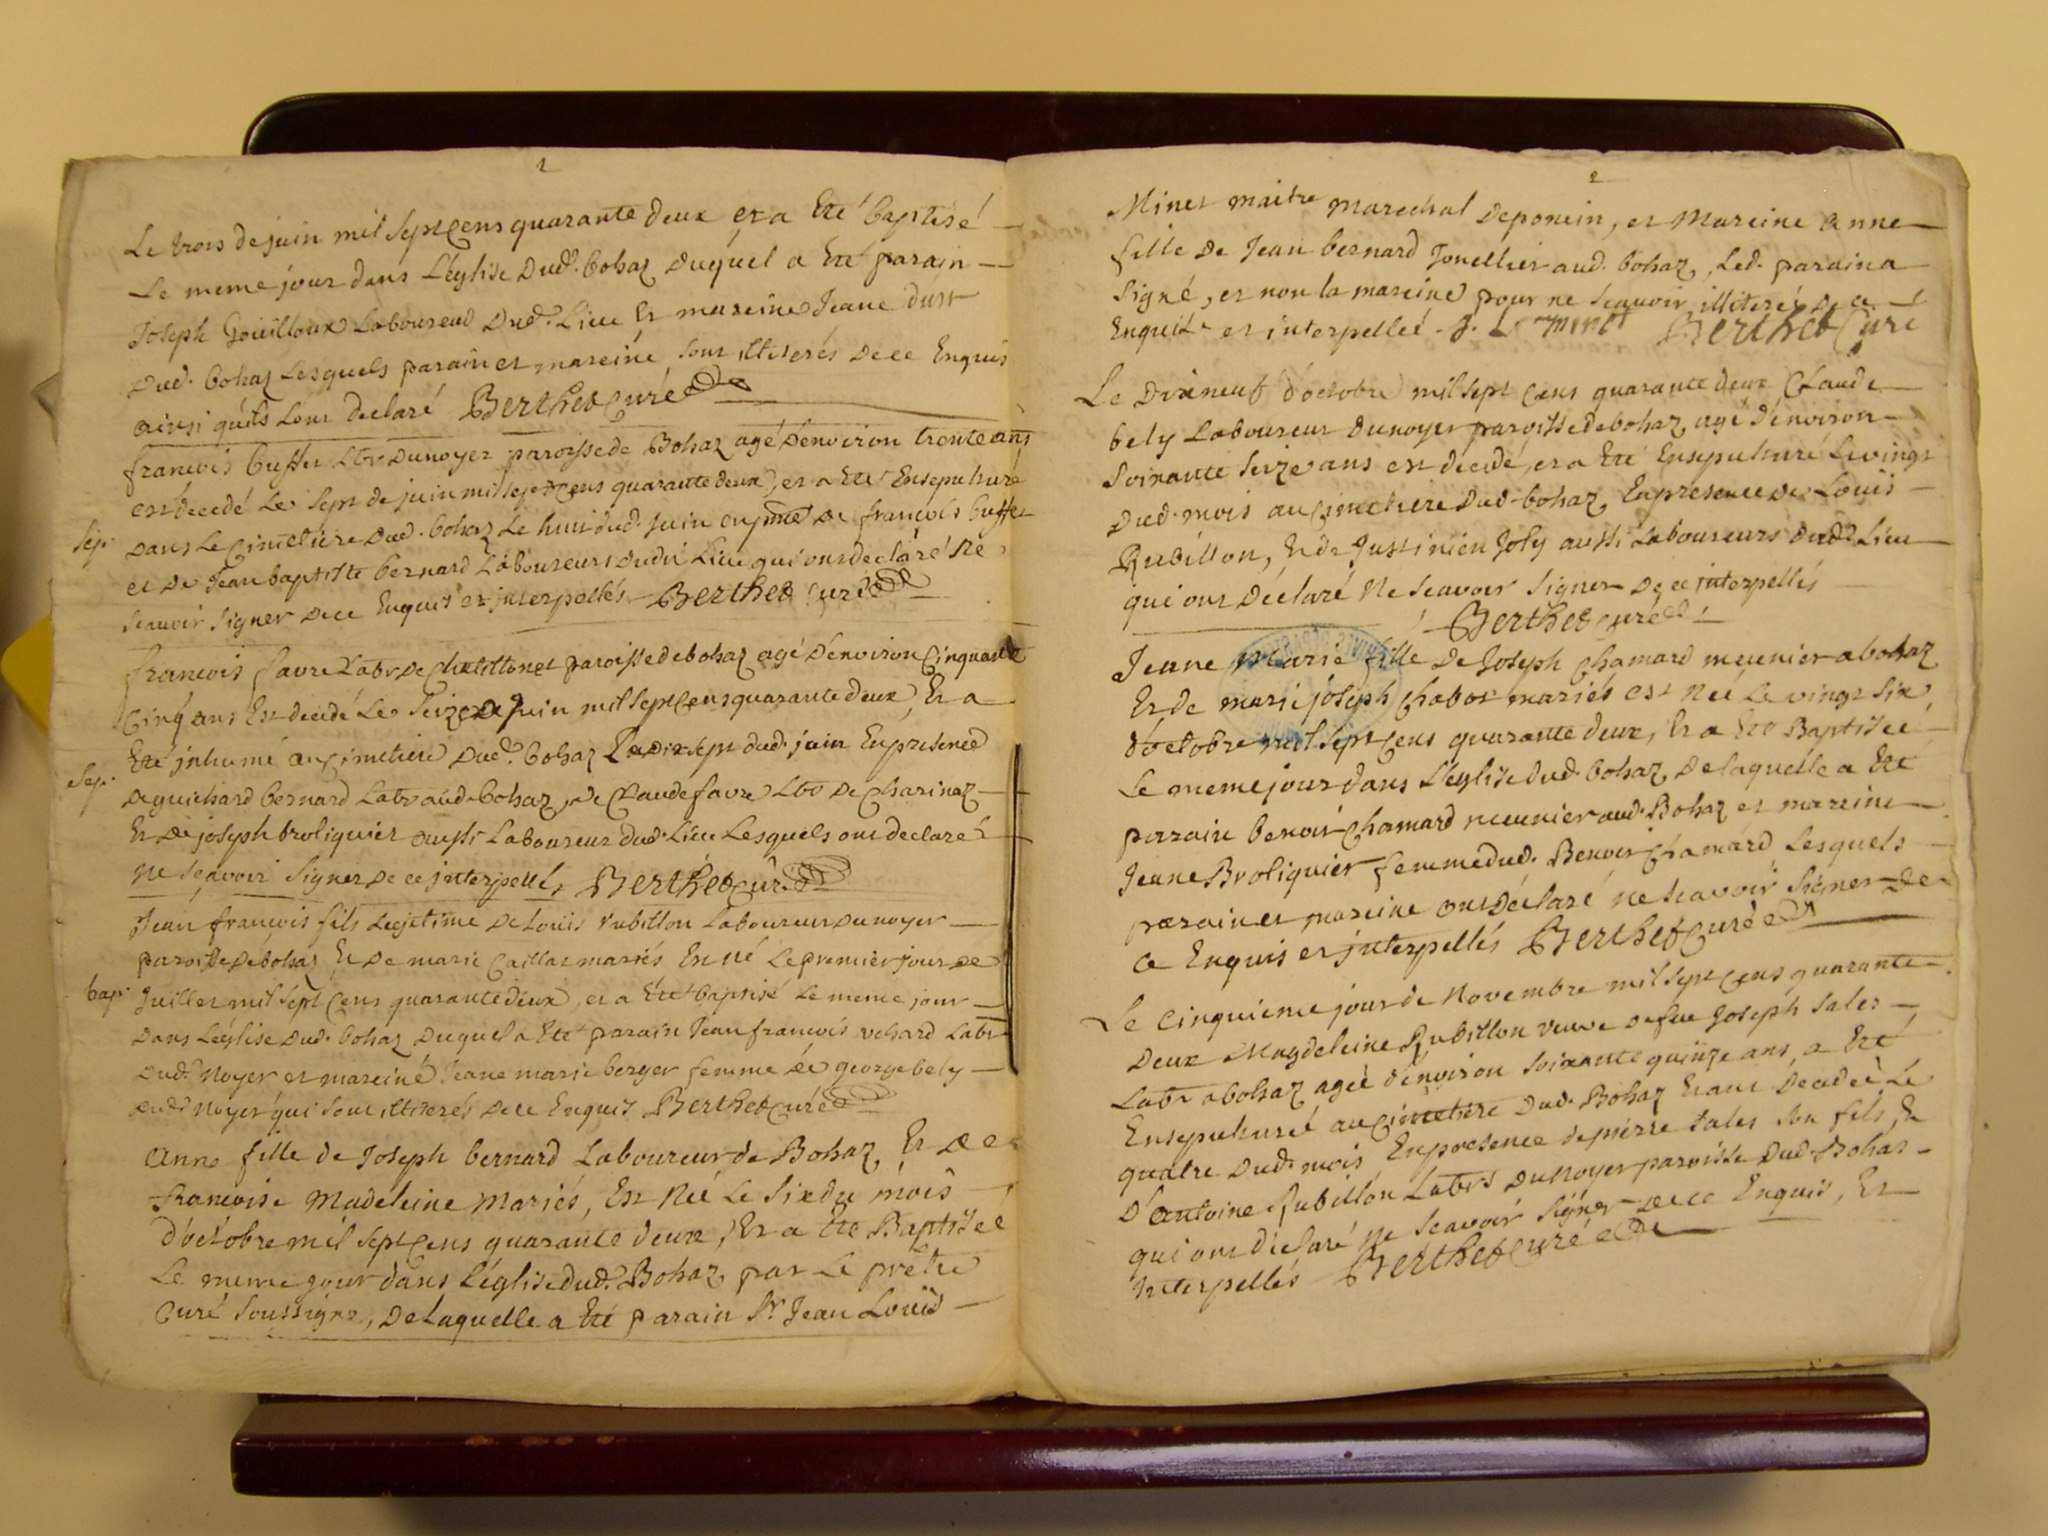 2
Le trois de juin mil sept cens quarante deux et a Eté baptisé
Le meme jour dans L'église Dud. bohaz Duquel a Eté parain
Joseph Goüilloux Laboureur Dud. Lieu Et mareine Jeane
Dud. bohaz Lesquels parain et mareine sont illiterés De ce Enquis
ainsi qu'ils l'ont declaré Berthet Curé
francois buffet Lbr Dunoyer paroisse de Bohaz agé D'environ trente ans
est décedé Le sept de juin mil sept cens quarante deux, et a Eté Ensepulturé
sep.
Dans Le Cimetière Dud. bohaz Le huit dud. juin en pnce de françois buffet
et De Jean baptiste bernard Laboureurs Dudit Lieu qui ont declaré Ne
scavoir signer De ce Enquis et interpellés Berthet Curé
francois favre Labr De Chatillonet paroisse de bohaz agé D'environ Cinquante
Cinq ans Est decedé Le seize De juin mil sept cens quarante deux, Et a
Eté inhumé au Cimetiere Dud. bohaz Le dix sept dud. juin En presence
sep.
De guichard bernard Labr aud. bohaz, De Claude favre Lbr De Charinaz
Et De joseph broliquier aussi Laboureur Dud. Lieu Lesquels ont declaré
ne sçavoir signer De ce interpellés Berthet Curé
Jean françois fils Legitime De Loüis Rubillon Laboureur Dunoyer
paroisse De bohaz Et De marie Caillat mariés En né Le premier jour de
bap.
Juillet mil sept cens quarante deux, et a Eté baptisé Le meme jour
Dans L'église Dud. bohaz Duquel a Eté parain Jean francois Labr
Dud. Noyer et mareine Jeane marie berger femme De george bely
dud. Noyer qui sont illiterés De ce Enquis Berthet Curé
Anne fille de Joseph bernard Laboureur de Bohaz, Et De
francoise Madeleine Mariés, Est Née Le six du mois
D'octobre mil sept cens quarante deux, Et a Eté Baptisée
Le meme jour dans L'église Dud. Bohaz, par Le prêtre
Curé soussigné, De Laquelle a Eté parain Sr Jean Loüis
2
Minet maitre marechal Deponcin, et Mareine Anne
fille De Jean bernard Tonellier aud. bohaz, Led. parain a
signé, et non la mareine pour ne scavoir illiterée De ce
Enquise et interpellée. Berthet Curé
Le Dixneuf d'octobre mil sept cens quarante deux Claude
bely Laboureur Dunoyer paroisse de bohaz, agé d'environ
soixante seize ans est décedé, et a Eté Ensepulturé Le vingt
Dud. mois au Cimetiere Dud. bohaz, En presence De Loüis
Rubillon, Et de Justinien Joly aussi Laboureurs Dud. Lieu
qui ont Déclaré Ne scavoir signer De ce interpellés
Berthet curé
Jeane Marie fille De Joseph Chamard meunier a bohaz
Et de marie joseph Chabot mariés est Née Le vingt six
d'octobre mil sept cens quarante deux, Et a Eté Baptisée
Le meme jour dans L'église Dud. bohaz, De laquelle a Eté
parain benoit Chamard meunier aud. Bohaz et mareine
Jeane Broliquier femme Dud. Benoit Chamard Lesquels
parain et mareine ont Déclaré ne scavoir signer De
ce Enquis et interpellés Berthet Curé
Le cinquieme jour de Novembre mil sept cens quarante
Deux Magdeleine Rubillon veuve De feu Joseph Sales
Labr a bohaz agée d'environ soixante quinze ans, a Eté
Ensepulturée au Cimetiere Dud. Bohaz Etant Décedée Le
quatre Dud. mois, En presence de pierre Sales son fils, Et
D'antoine Rubillon Labrs Dunoyer paroisse Dud. Bohas
qui ont Déclaré ne scavoir signer De ce Enquis, Et
Interpellés Berthet Curé